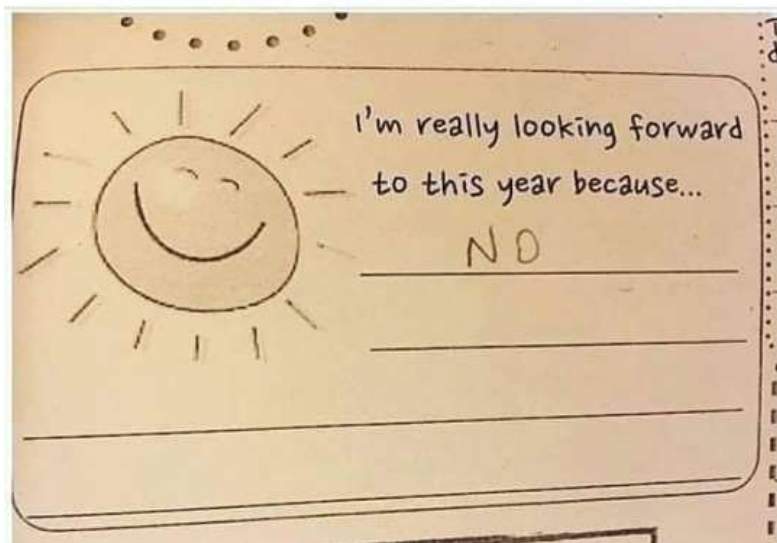 I'm really looking forward
to this year because...
NO